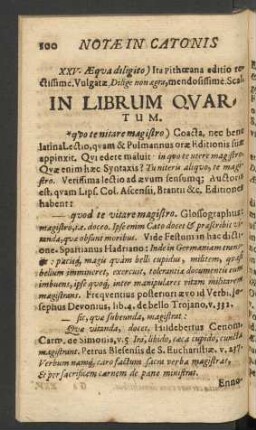 100 NOTÆ IN CATONIS
XXV. Æqua diligito) Ita Pithœana editio re-
ctissime. Vulgatæ, Dilige non ægra, mendosissime. Scal.
IN LIBRUM QVAR-
TUM.
quo te mitare magistro) Coacta, nec bene
latina Lectio, quam & Pulmannus oræ Editionis suæ
appinxit. Qui edere maluit: in quo te utere magistro.
Quæ enim hæc Syntaxis? Tu uteris aliquo, te magi-
stro. Verissima lectio ad ævum sensumq; auctoris
est, quam Lips. Col. Ascensii, Brantii &c. Editiones
habent:
— quod te vitare magistro. Glossographus:
magistro, i.e. doceo. Ipse enim Cato docet & præscribit vi-
tanda, quæ obsunt moribus. Vide Festum in hac dicti-
one. Spartianus Hadriano: Inde in Germaniam trans-
iit: pacisq; magis quàm belli cupidus, militem, quasi
bellum immineret, exercuit, tolerantiæ documentis eum
imbuens, ipse quoq; inter manipulares vitam militarem
magistrans. Freqventius posteriori ævo id Verbi. Jo-
sephus Devonius, lib. 4. de bello Trojano, v. 332.
— sic, quæ subeunda, magistrat:
Quæ vitanda, docet. Hildebertus Cenom.
Carm. de Somnio, v. 5 Ira, libido, cæca cupido, cuncta
magistrant. Petrus Blesensis de S. Eucharistiæ. v. 257.
Verbum namq; caro factum sacra verba magistrat,
& per sacrificium carnem de pane ministrat.
Enno-